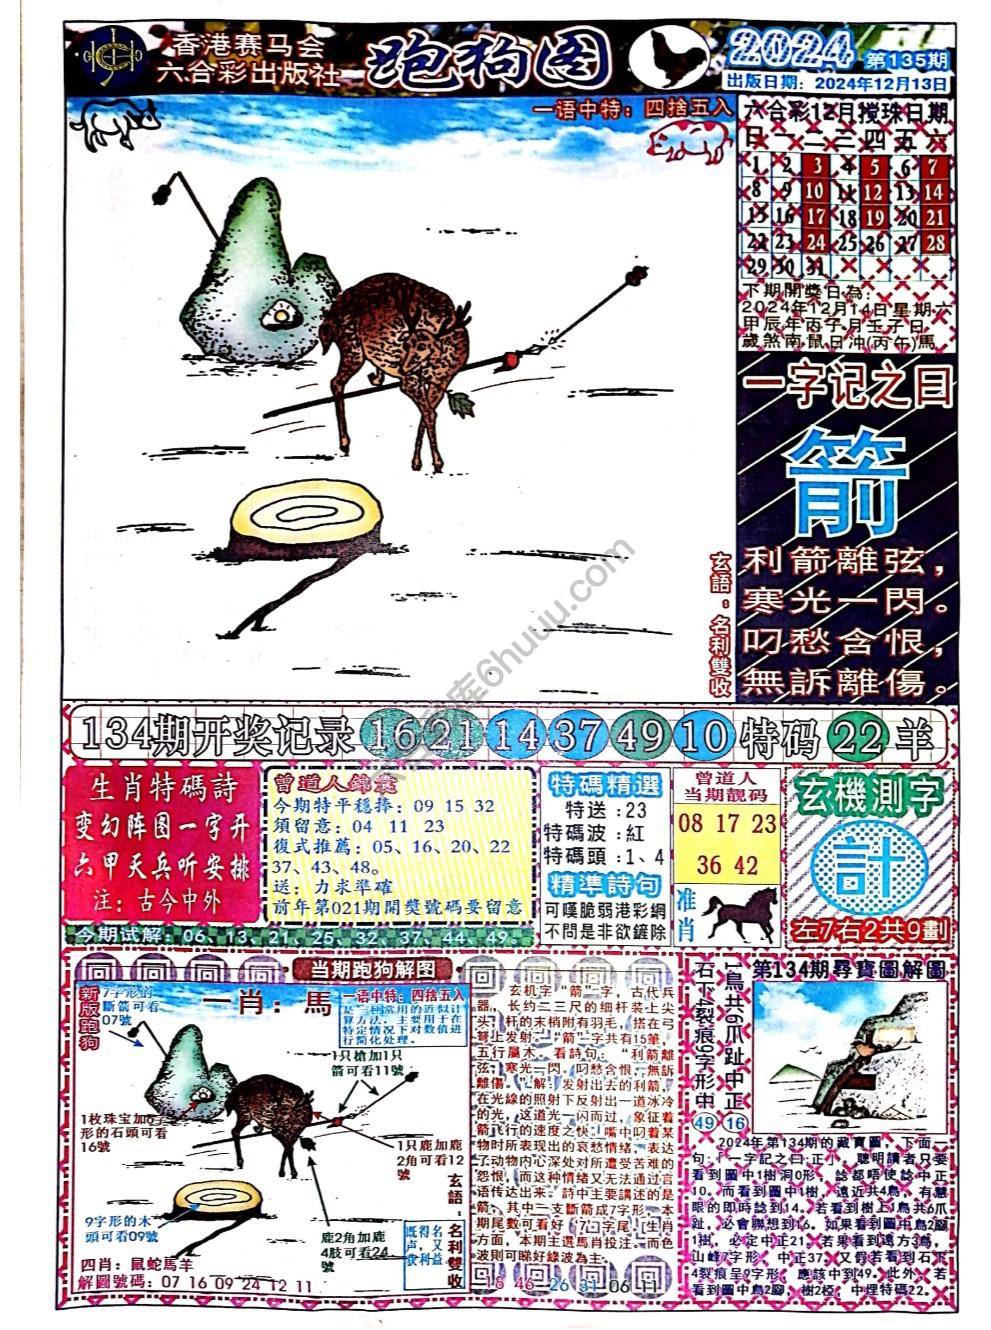 香港赛马会
六合彩出版社
跑狗图
2024 第135期
出版日期：2024年12月13日
一语中特：四捨五入
六合彩12月搅珠日期
日一二三四五六
1 2 3 4 5 6 7
8 9 10 11 12 13 14
15 16 17 18 19 20 21
22 23 24 25 26 27 28
29 30 31
下期開獎日為：
2024年12月14日星期六
甲辰年丙子月壬子日
歲煞南鼠日沖(丙午)馬
一字记之曰
箭
利箭離弦，
寒光一閃。
叼愁含恨，
無訴離傷。
玄語：名利雙收
134期开奖记录 16 21 14 37 49 10 特码 22 羊
生肖特碼詩
变幻阵图一字开
六甲天兵听安排
注：古今中外
曾道人錦囊
今期特平穩捧：09 15 32
須留意：04 11 23
復式推薦：05、16、20、22
37、43、48。
送：力求準確
前年第021期開獎號碼要留意
今期试解：06、13、21、25、32、37、44、49。
特碼精選
特送：23
特碼波：紅
特碼頭：1、4
精準詩句
可嘆脆弱港彩網
不問是非欲鏟除
曾道人
当期靓码
08 17 23
36 42
准肖
玄機測字
計
左7右2共9劃
当期跑狗解图
新版跑狗
7字形的
斷箭可看
07號
一肖：馬
一语中特：四捨五入
是一种常用的近似计
算方法，主要用于在
特定情况下对数值进
行简化处理。
1只槍加1只
箭可看11號
1枚珠宝加6字
形的石頭可看
16號
1只鹿加鹿
2角可看12
號
9字形的木
頭可看09號
鹿2角加鹿
4肢可看24
號
玄語：名利雙收
既得名又
声，又益
获利
四肖：鼠蛇馬羊
解圖號碼：07 16 09 24 12 11
玄机字“箭”字，古代兵
器，长约二三尺的细杆装上尖
头，杆的末梢附有羽毛，搭在弓
弩上发射。“箭”字共有15筆，
五行屬木。看詩句：“利箭離
弦，寒光一閃。叼愁含恨，無訴
離傷。”解：发射出去的利箭，
在光線的照射下反射出一道冰冷
的光，这道光一闪而过，象征着
箭飞行的速度之快。嘴中叼着某
物时所表现出的哀愁情绪，表达
了动物内心深处对所遭受苦难的
怨恨，而这种情绪又无法通过言
语传达出来。詩中主要講述的是
箭，其中一支斷箭成7字形，本
期尾數可看好「7」字尾，生肖
方面，本期主選馬肖投注。而色
波則可睇好綠波為主。
18 46 26 31 06 11
第134期尋寶圖解圖
一鳥共6爪趾中正16
石下裂痕9字形中49
2024年第134期的藏寶圖，下面一
句：「一字記之曰:正」，聰明讀者只要
看到圖中1樹洞0形，諗都唔使諗中正
10。而看到圖中1樹，遠近共4鳥，有慧
眼的即時諗到14。若看到樹上1鳥共6爪
趾，必會聯想到16。如果看到圖中鳥2腳
1樹，必定中正21。若果看到遠方3鳥，
山峰7字形，中正37。又假若看到石下
4裂痕呈9字形，應該中到49。此外，若
看到圖中鳥2腳，樹2椏，中埋特碼22。